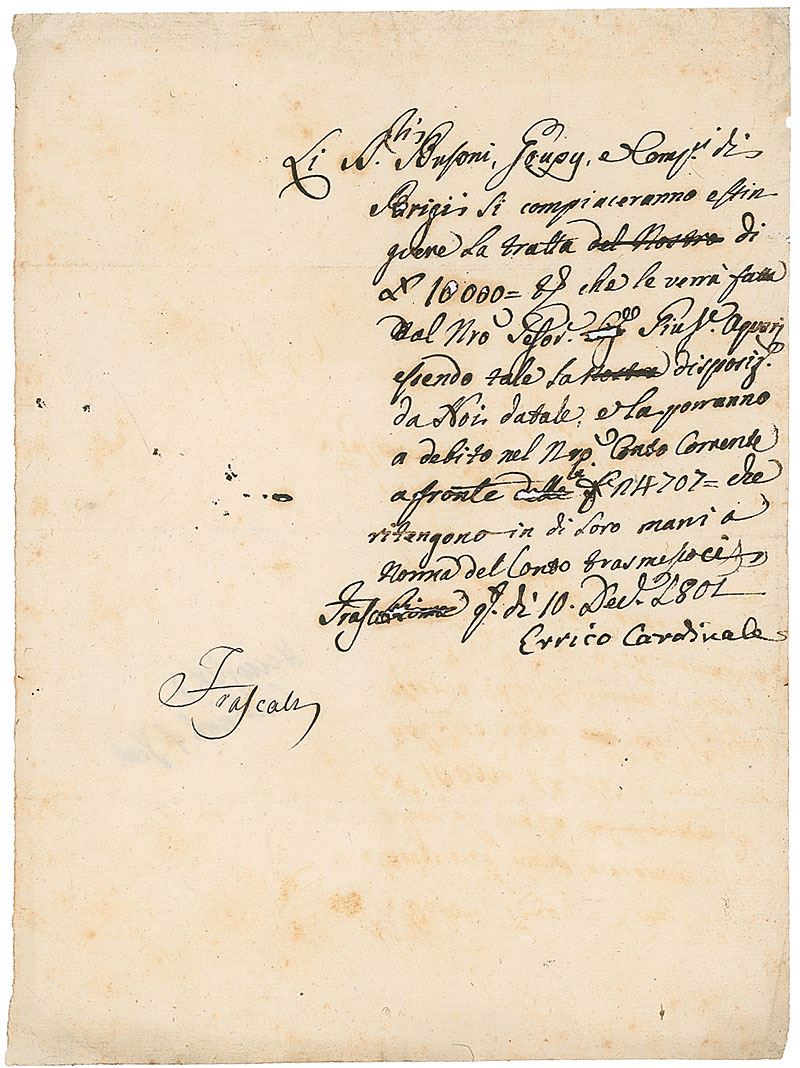 Li S.ri Busoni, Goupy, e Comp.i di
Parigi si compiaceranno estin
guere la tratta del Nostro di
10000= che le verrà fatta
Dal Nro Tesor. Gius.e
essendo tale la nostra disposiz.e
da Noi datale, e la porranno
a debito nel Nro Conto Corrente
a fronte delle 114707= che
ritengono in di Loro mani a
Norma del Conto trasmessoci
Frasc di 10. Dec. 1801
Errico Cardinale
Frascati